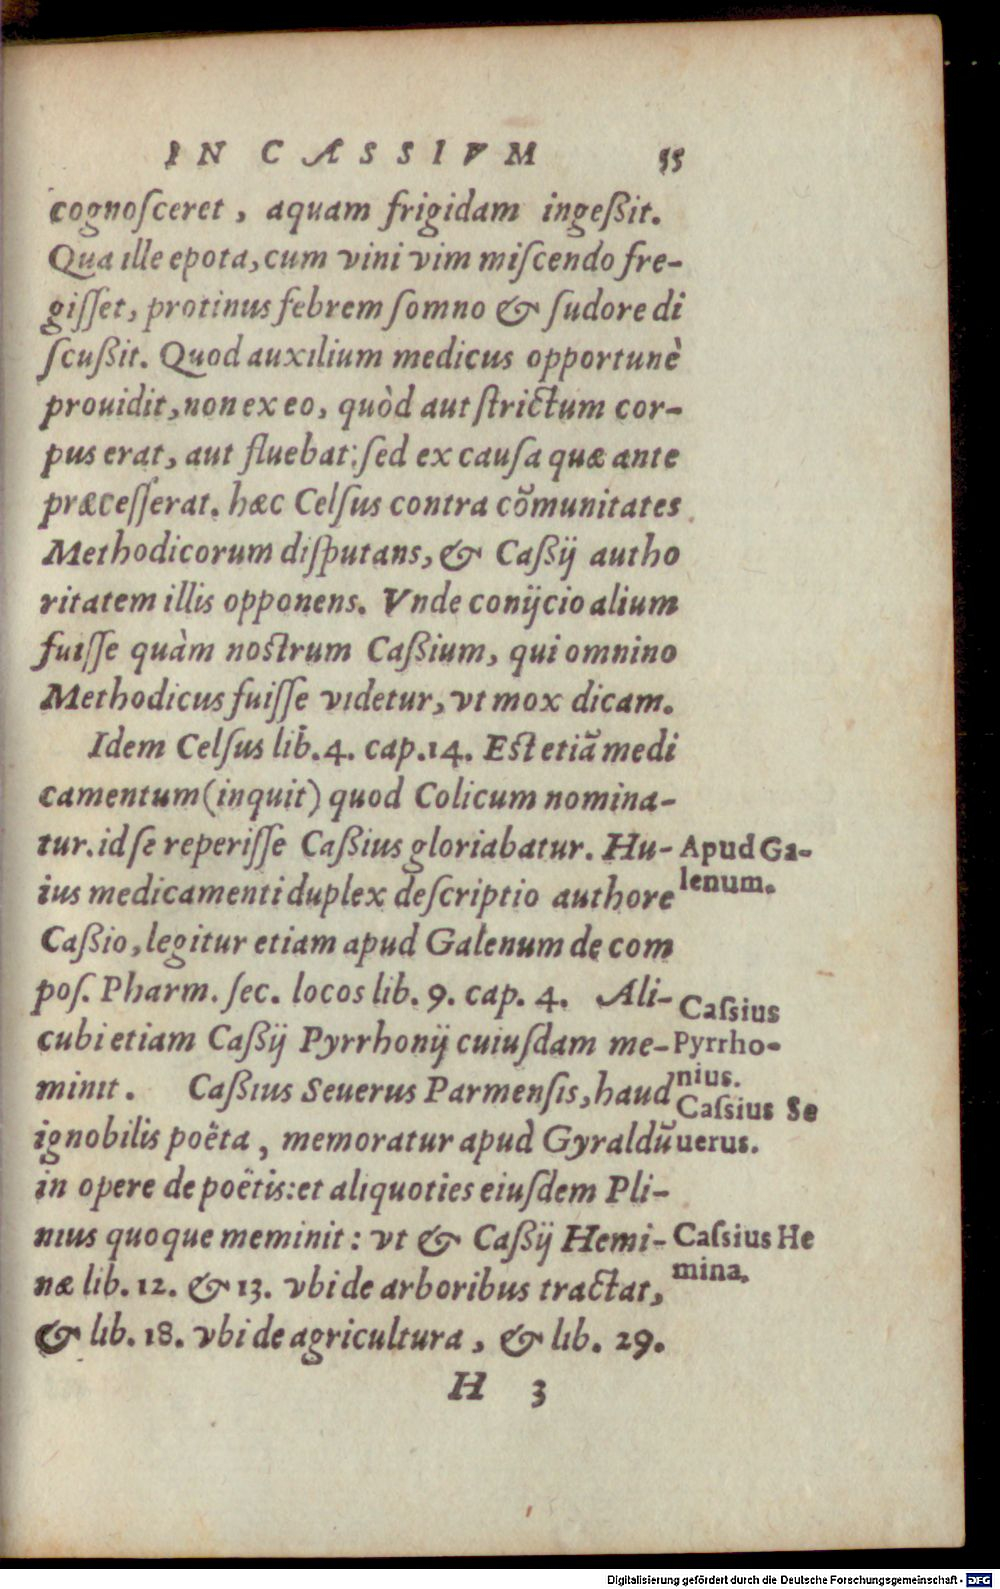 IN CASSIVM 55
cognoſceret, aquam frigidam ingeßit.
Qua ille epota, cum vini vim miſcendo fre-
giſſet, protinus febrem ſomno & ſudore di
ſcußit. Quod auxilium medicus opportunè
prouidit, non ex eo, quòd aut ſtrictum cor-
pus erat, aut fluebat: ſed ex cauſa quæ ante
præceſſerat. hæc Celſus contra cōmunitates
Methodicorum diſputans, & Caßij autho
ritatem illis opponens. Vnde conijcio alium
fuiſſe quàm noſtrum Caßium, qui omnino
Methodicus fuiſſe videtur, vt mox dicam.
Idem Celſus lib. 4. cap. 14. Eſt etiā medi
camentum (inquit) quod Colicum nomina-
tur. id ſe reperiſſe Caßius gloriabatur. Hu-
Apud Ga-
lenum.
ius medicamenti duplex deſcriptio authore
Caßio, legitur etiam apud Galenum de com
poſ. Pharm. ſec. locos lib. 9. cap. 4. Ali-
Caſsius
Pyrrho-
nius.
cubi etiam Caßij Pyrrhonij cuiuſdam me-
minit. Caßius Seuerus Parmenſis, haud
Caſsius Se
uerus.
ignobilis poëta, memoratur apud Gyraldū
in opere de poëtis: et aliquoties eiuſdem Pli-
nius quoque meminit: vt & Caßij Hemi-
Caſsius He
mina.
næ lib. 12. & 13. vbi de arboribus tractat,
& lib. 18. vbi de agricultura, & lib. 29.
H 3
Digitalisierung gefördert durch die Deutsche Forschungsgemeinschaft - DFG